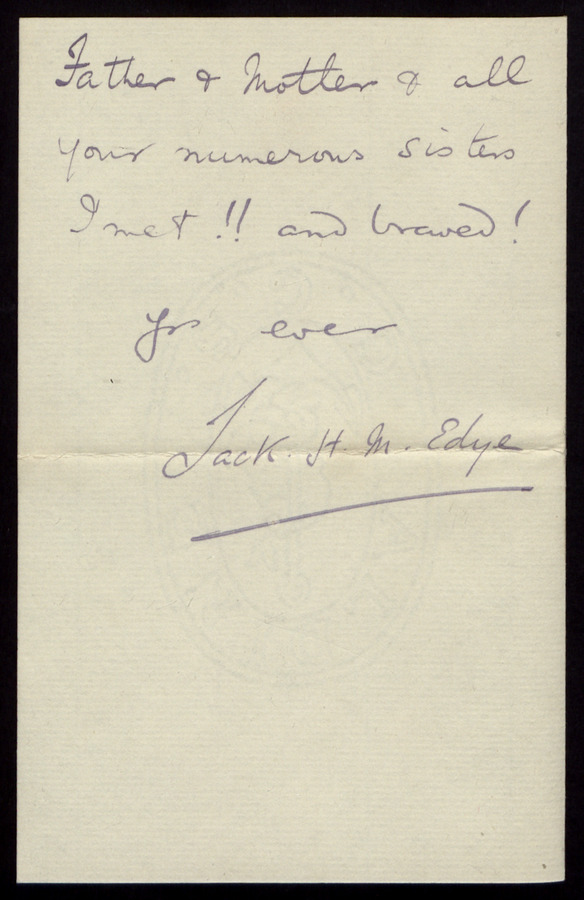 Father & Mother & all
your numerous sisters
I met !! and braved!
Yrs ever
Jack. H. M. Edye